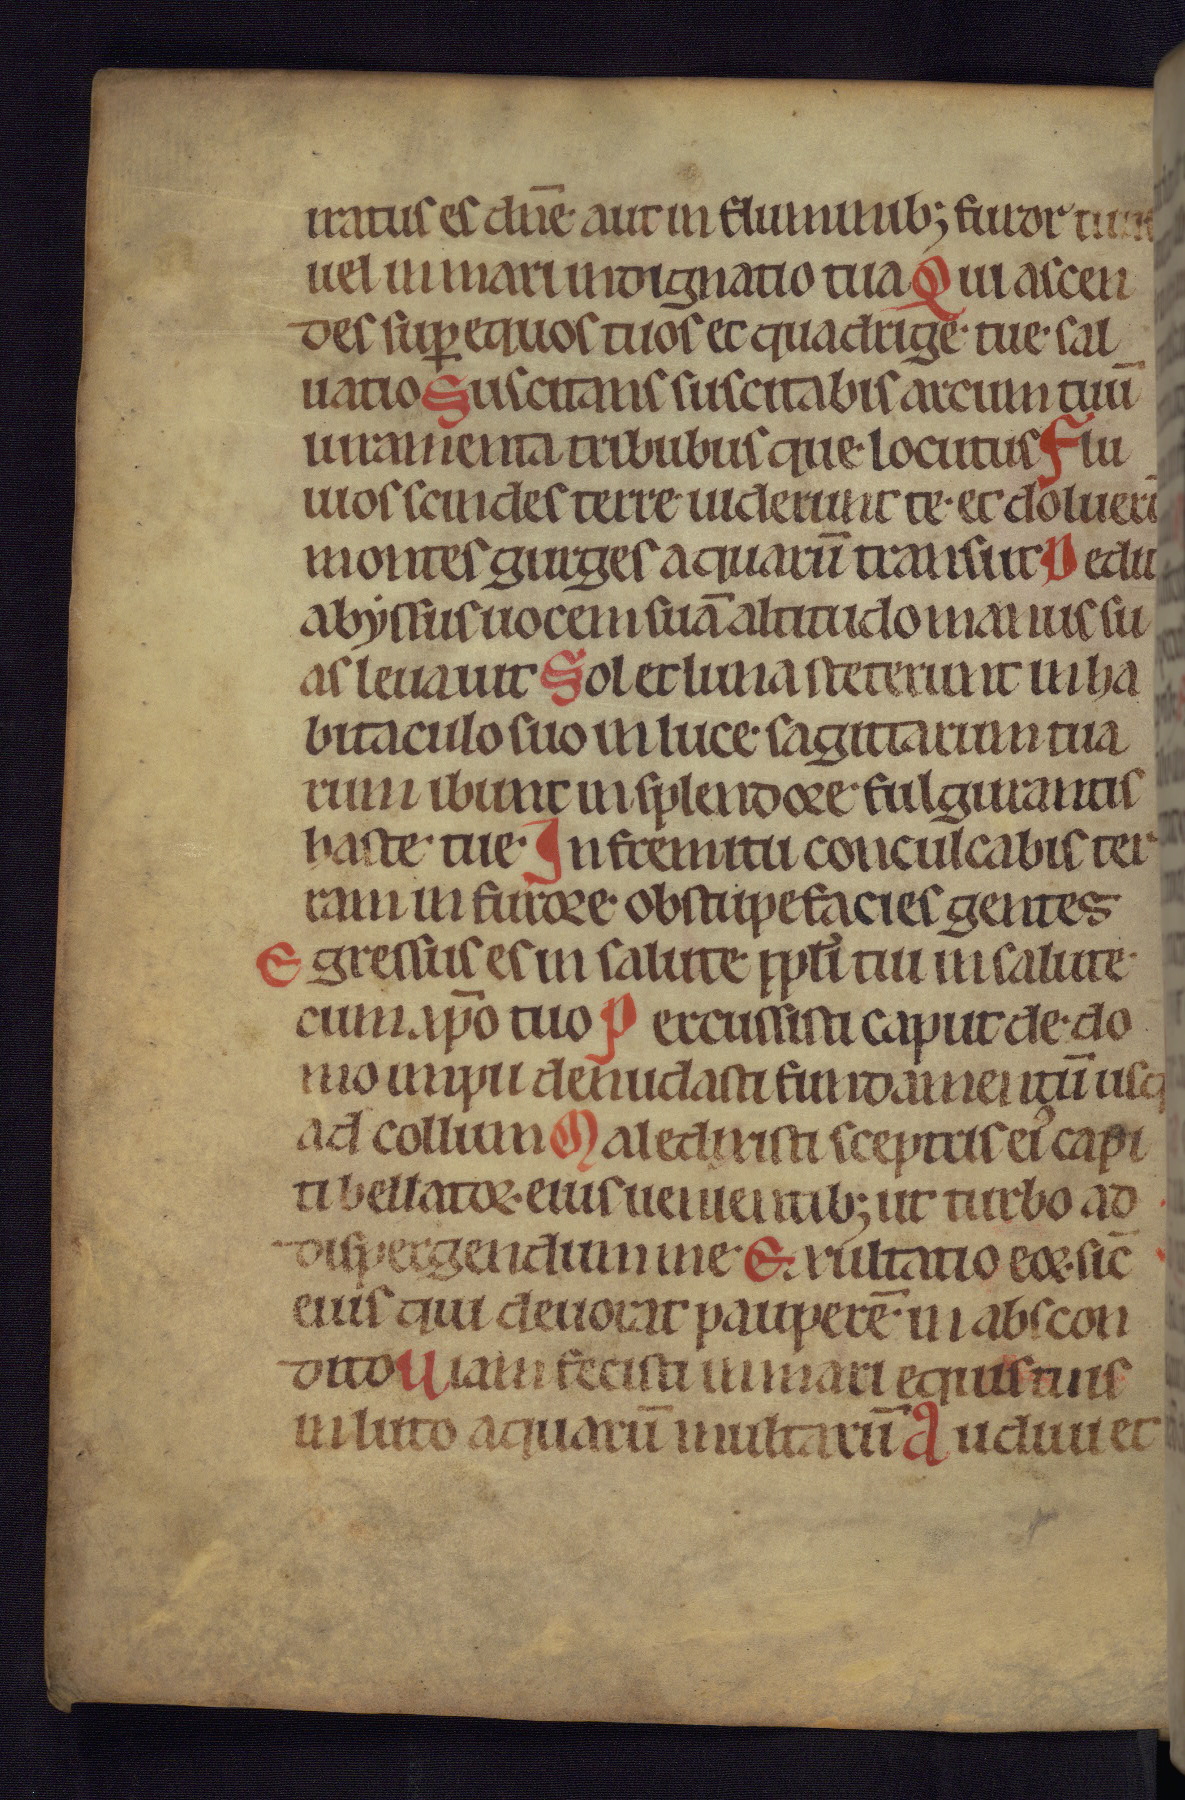 iratus es dn̄e aut in fluminib; furor tuus
uel in mari indignatio tua Qui ascen
des sup̄ equos tuos et quadrige tue sal
uatio Suscitans suscitabis arcum tuū
iuramenta tribubus que locutus Flu
uios scindes terre uiderunt te et doluerūt
montes gurges aquarū transiit Dedit
abyssus uocem suā altitudo manus su
as leuauit Sol et luna steterunt in ha
bitaculo suo in luce sagittarum tua
rum ibunt in splendore fulgurantis
haste tue In fremitu conculcabis ter
ram in furore obstupefacies gentes
Egressus es in salute ppl̓i tui in salute
cum xp̄o tuo Percussisti caput de do
mo impii denudasti fundamentū usq
ad collum Maledixisti sceptris ei᾿ capi
ti bellatoꝝ eius uenientib; ut turbo ad
dispergendum me Exultatio eoꝝ sic̄
eius qui deuorat pauperē in abscon
dito Uiam fecisti in mari equis tuis
in luto aquarū multarū Audiui et